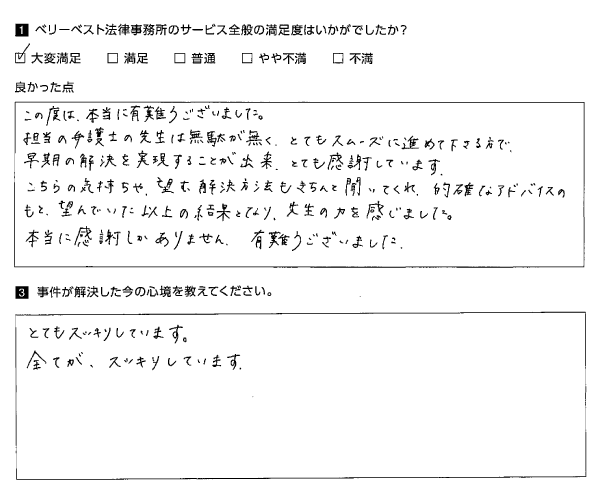 1 ベリーベスト法律事務所のサービス全般の満足度はいかがでしたか?
☑ 大変満足 □ 満足 □ 普通 □ やや不満 □ 不満
良かった点
この度は、本当に有難うございました。
担当の弁護士の先生は無駄が無く、とてもスムーズに進めて下さる方で、
早期の解決を実現することが出来、とても感謝しています。
こちらの気持ちや、望む解決方法もきちんと聞いてくれ、的確なアドバイスの
もと、望んでいた以上の結果となり、先生の力を感じました。
本当に感謝しかありません。 有難うございました。
3 事件が解決した今の心境を教えてください。
とてもスッキリしています。
全てが、スッキリしています。